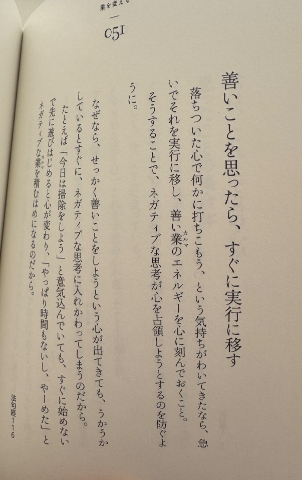 業を変える
051
善いことを思ったら、すぐに実行に移す
落ちついた心で何かに打ちこもう、という気持ちがわいてきたなら、急
いでそれを実行に移し、善い業のエネルギーを心に刻んでおくこと。
カルマ
そうすることで、ネガティブな思考が心を占領しようとするのを防ぐよ
うに。
なぜなら、せっかく善いことをしようという心が出てきても、うかうか
しているとすぐに、ネガティブな思考に入れかわってしまうのだから。
たとえば「今日は掃除をしよう」と意気込んでいても、すぐに始めない
で先に遊びはじめると心が変わり、「やっぱり時間もないし、やーめた」と
ネガティブな業を積むはめになるのだから。
法句経116